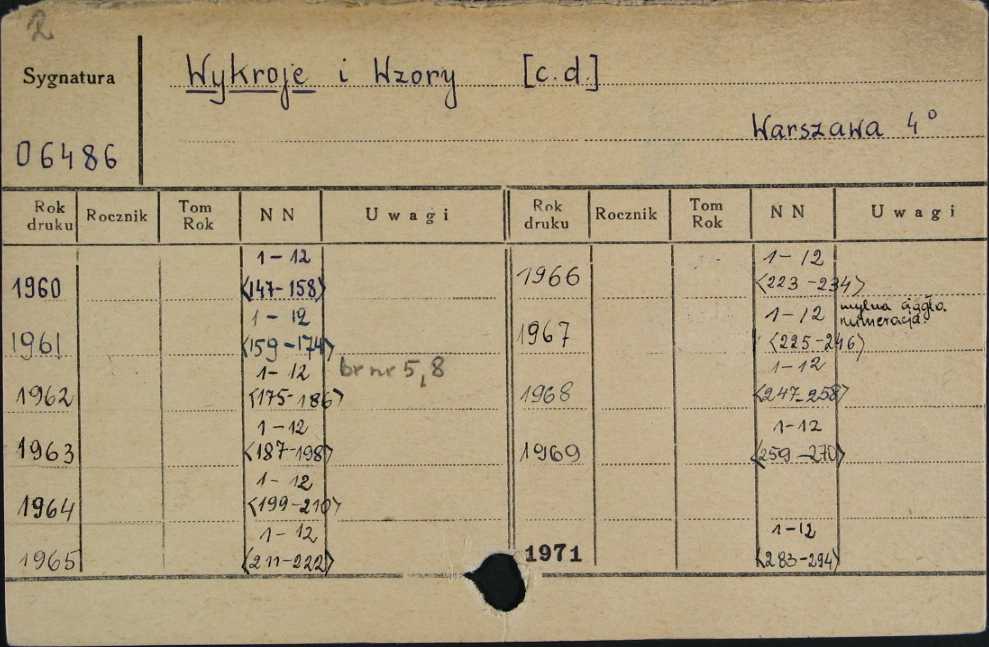 2
Sygnatura
06486
Wykroje i Wzory [c.d.]
Warszawa 4°
Rok druku Rocznik Tom Rok NN Uwagi Rok druku Rocznik Tom Rok NN Uwagi
1960 1-12 <147-158>
1961 1-12 <159-174>
1962 1-12 <175-186> br nr 5,8
1963 1-12 <187-198>
1964 1-12 <199-210>
1965 1-12 <211-222>
1966 1-12 <223-234>
1967 1-12 <225-246> mylna ciągła numeracja
1968 1-12 <247-258>
1969 1-12 <259-270>
1971 1-12 <283-294>